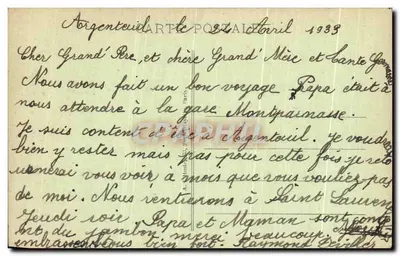 Argenteuil le 24 Avril 1933
CARTE POSTALE
Cher Grand' Père et chère Grand' Mère et Tante
Nous avons fait un bon voyage Papa était à
nous attendre à la gare Montparnasse.
Je suis content d'être à Argenteuil. Je voudr
bien y rester mais pas pour cette fois je reto
urnerai vous voir à mois que vous vouliez pas
de moi. Nous rentierons à Saint Lauren
Jeudi soir. Papa et Maman sont cont
ent du jambon merci beaucoup.
embrasse vous bien fort. Raymond